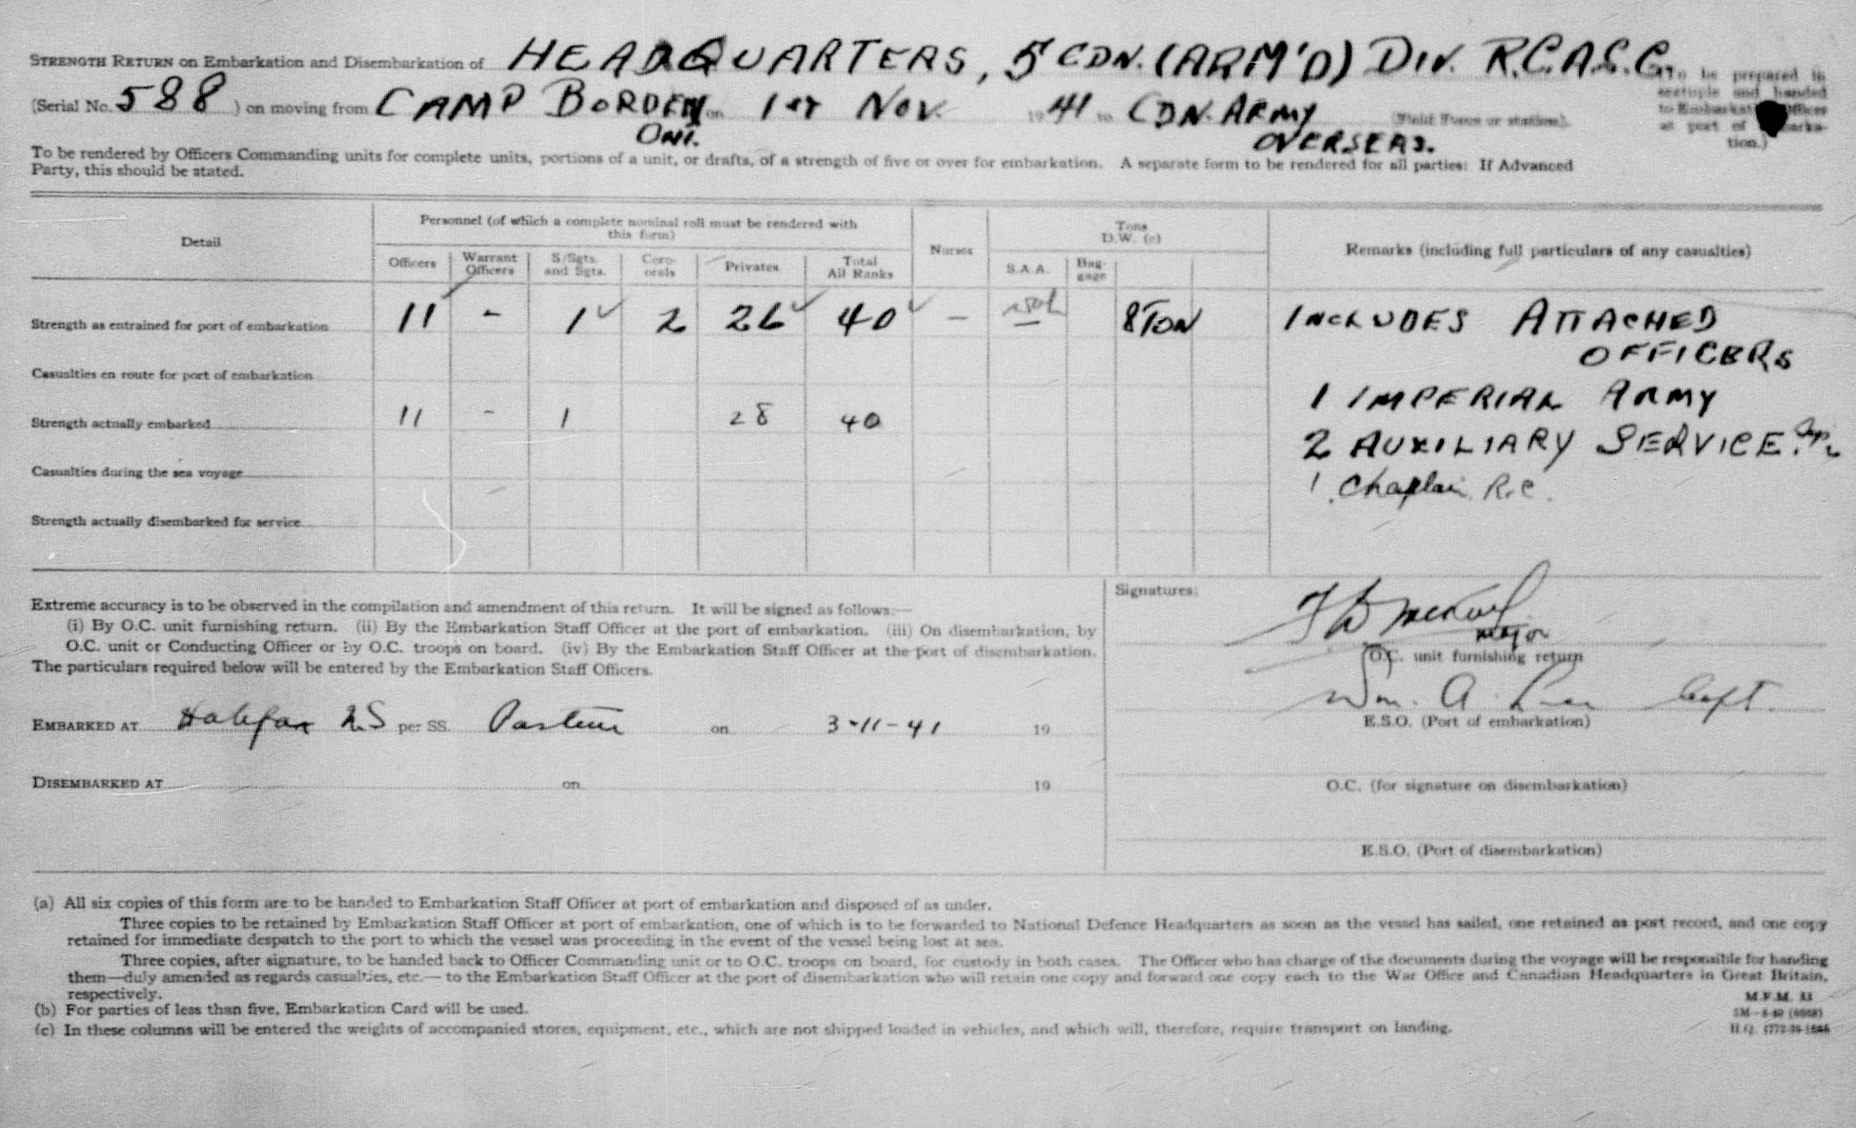 STRENGTH RETURN on Embarkation and Disembarkation of HEADQUARTERS, 5 CDN. (ARM'D) DIV. R.C.A.S.C. (To be prepared in
(Serial No. 588 ) on moving from CAMP BORDEN on 1st NOV. 1941 to CDN. ARMY (Field Force or station). sextuple and handed
ONT. OVERSEAS. to Embarkation Officer
at port of embarka-
tion.)
To be rendered by Officers Commanding units for complete units, portions of a unit, or drafts, of a strength of five or over for embarkation. A separate form to be rendered for all parties: If Advanced
Party, this should be stated.
Detail Personnel (of which a complete nominal roll must be rendered with this form) Nurses Tons D.W. (c) Remarks (including full particulars of any casualties)
Officers Warrant Officers S/Sgts. and Sgts. Corporals Privates Total All Ranks S.A.A. Bag-gage
Strength as entrained for port of embarkation 11 - 1 2 26 40 - 8 TON INCLUDES ATTACHED
OFFICERS
Casualties en route for port of embarkation
1 IMPERIAL ARMY
Strength actually embarked 11 - 1 28 40
2 AUXILIARY SERVICE.
Casualties during the sea voyage
1 Chaplain R.C.
Strength actually disembarked for service
Extreme accuracy is to be observed in the compilation and amendment of this return. It will be signed as follows:—
(i) By O.C. unit furnishing return. (ii) By the Embarkation Staff Officer at the port of embarkation. (iii) On disembarkation, by
O.C. unit or Conducting Officer or by O.C. troops on board. (iv) By the Embarkation Staff Officer at the port of disembarkation.
The particulars required below will be entered by the Embarkation Staff Officers.
Signatures:
Major
O.C. unit furnishing return
Wm. A. Capt.
E.S.O. (Port of embarkation)
EMBARKED AT Halifax NS per SS. Pasteur on 3-11-41 19
DISEMBARKED AT on 19
O.C. (for signature on disembarkation)
E.S.O. (Port of disembarkation)
(a) All six copies of this form are to be handed to Embarkation Staff Officer at port of embarkation and disposed of as under.
Three copies to be retained by Embarkation Staff Officer at port of embarkation, one of which is to be forwarded to National Defence Headquarters as soon as the vessel has sailed, one retained as port record, and one copy
retained for immediate despatch to the port to which the vessel was proceeding in the event of the vessel being lost at sea.
Three copies, after signature, to be handed back to Officer Commanding unit or to O.C. troops on board, for custody in both cases. The Officer who has charge of the documents during the voyage will be responsible for handing
them—duly amended as regards casualties, etc.— to the Embarkation Staff Officer at the port of disembarkation who will retain one copy and forward one copy each to the War Office and Canadian Headquarters in Great Britain,
respectively.
(b) For parties of less than five, Embarkation Card will be used.
(c) In these columns will be entered the weights of accompanied stores, equipment, etc., which are not shipped loaded in vehicles, and which will, therefore, require transport on landing.
M.F.M. 33
H.Q.